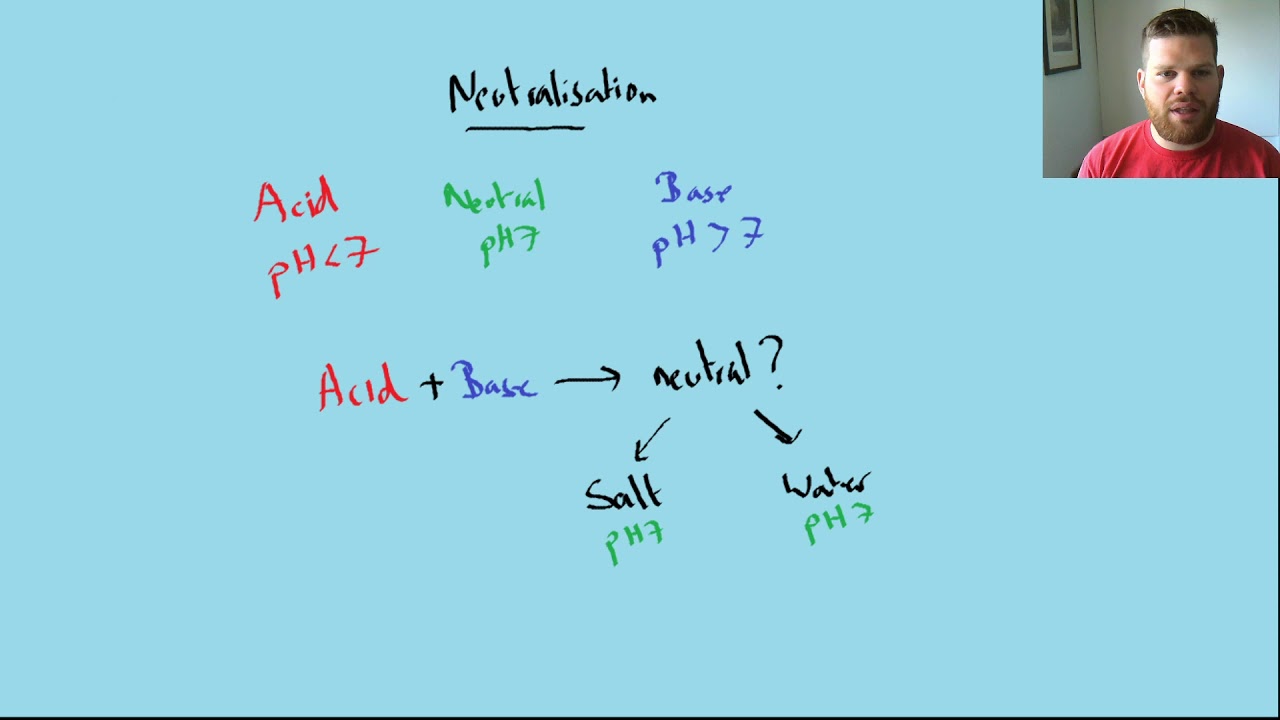 Neutralisation
Acid Neutral Base
pH<7 pH7 pH>7
Acid + Base → neutral?
Salt Water
pH7 pH7